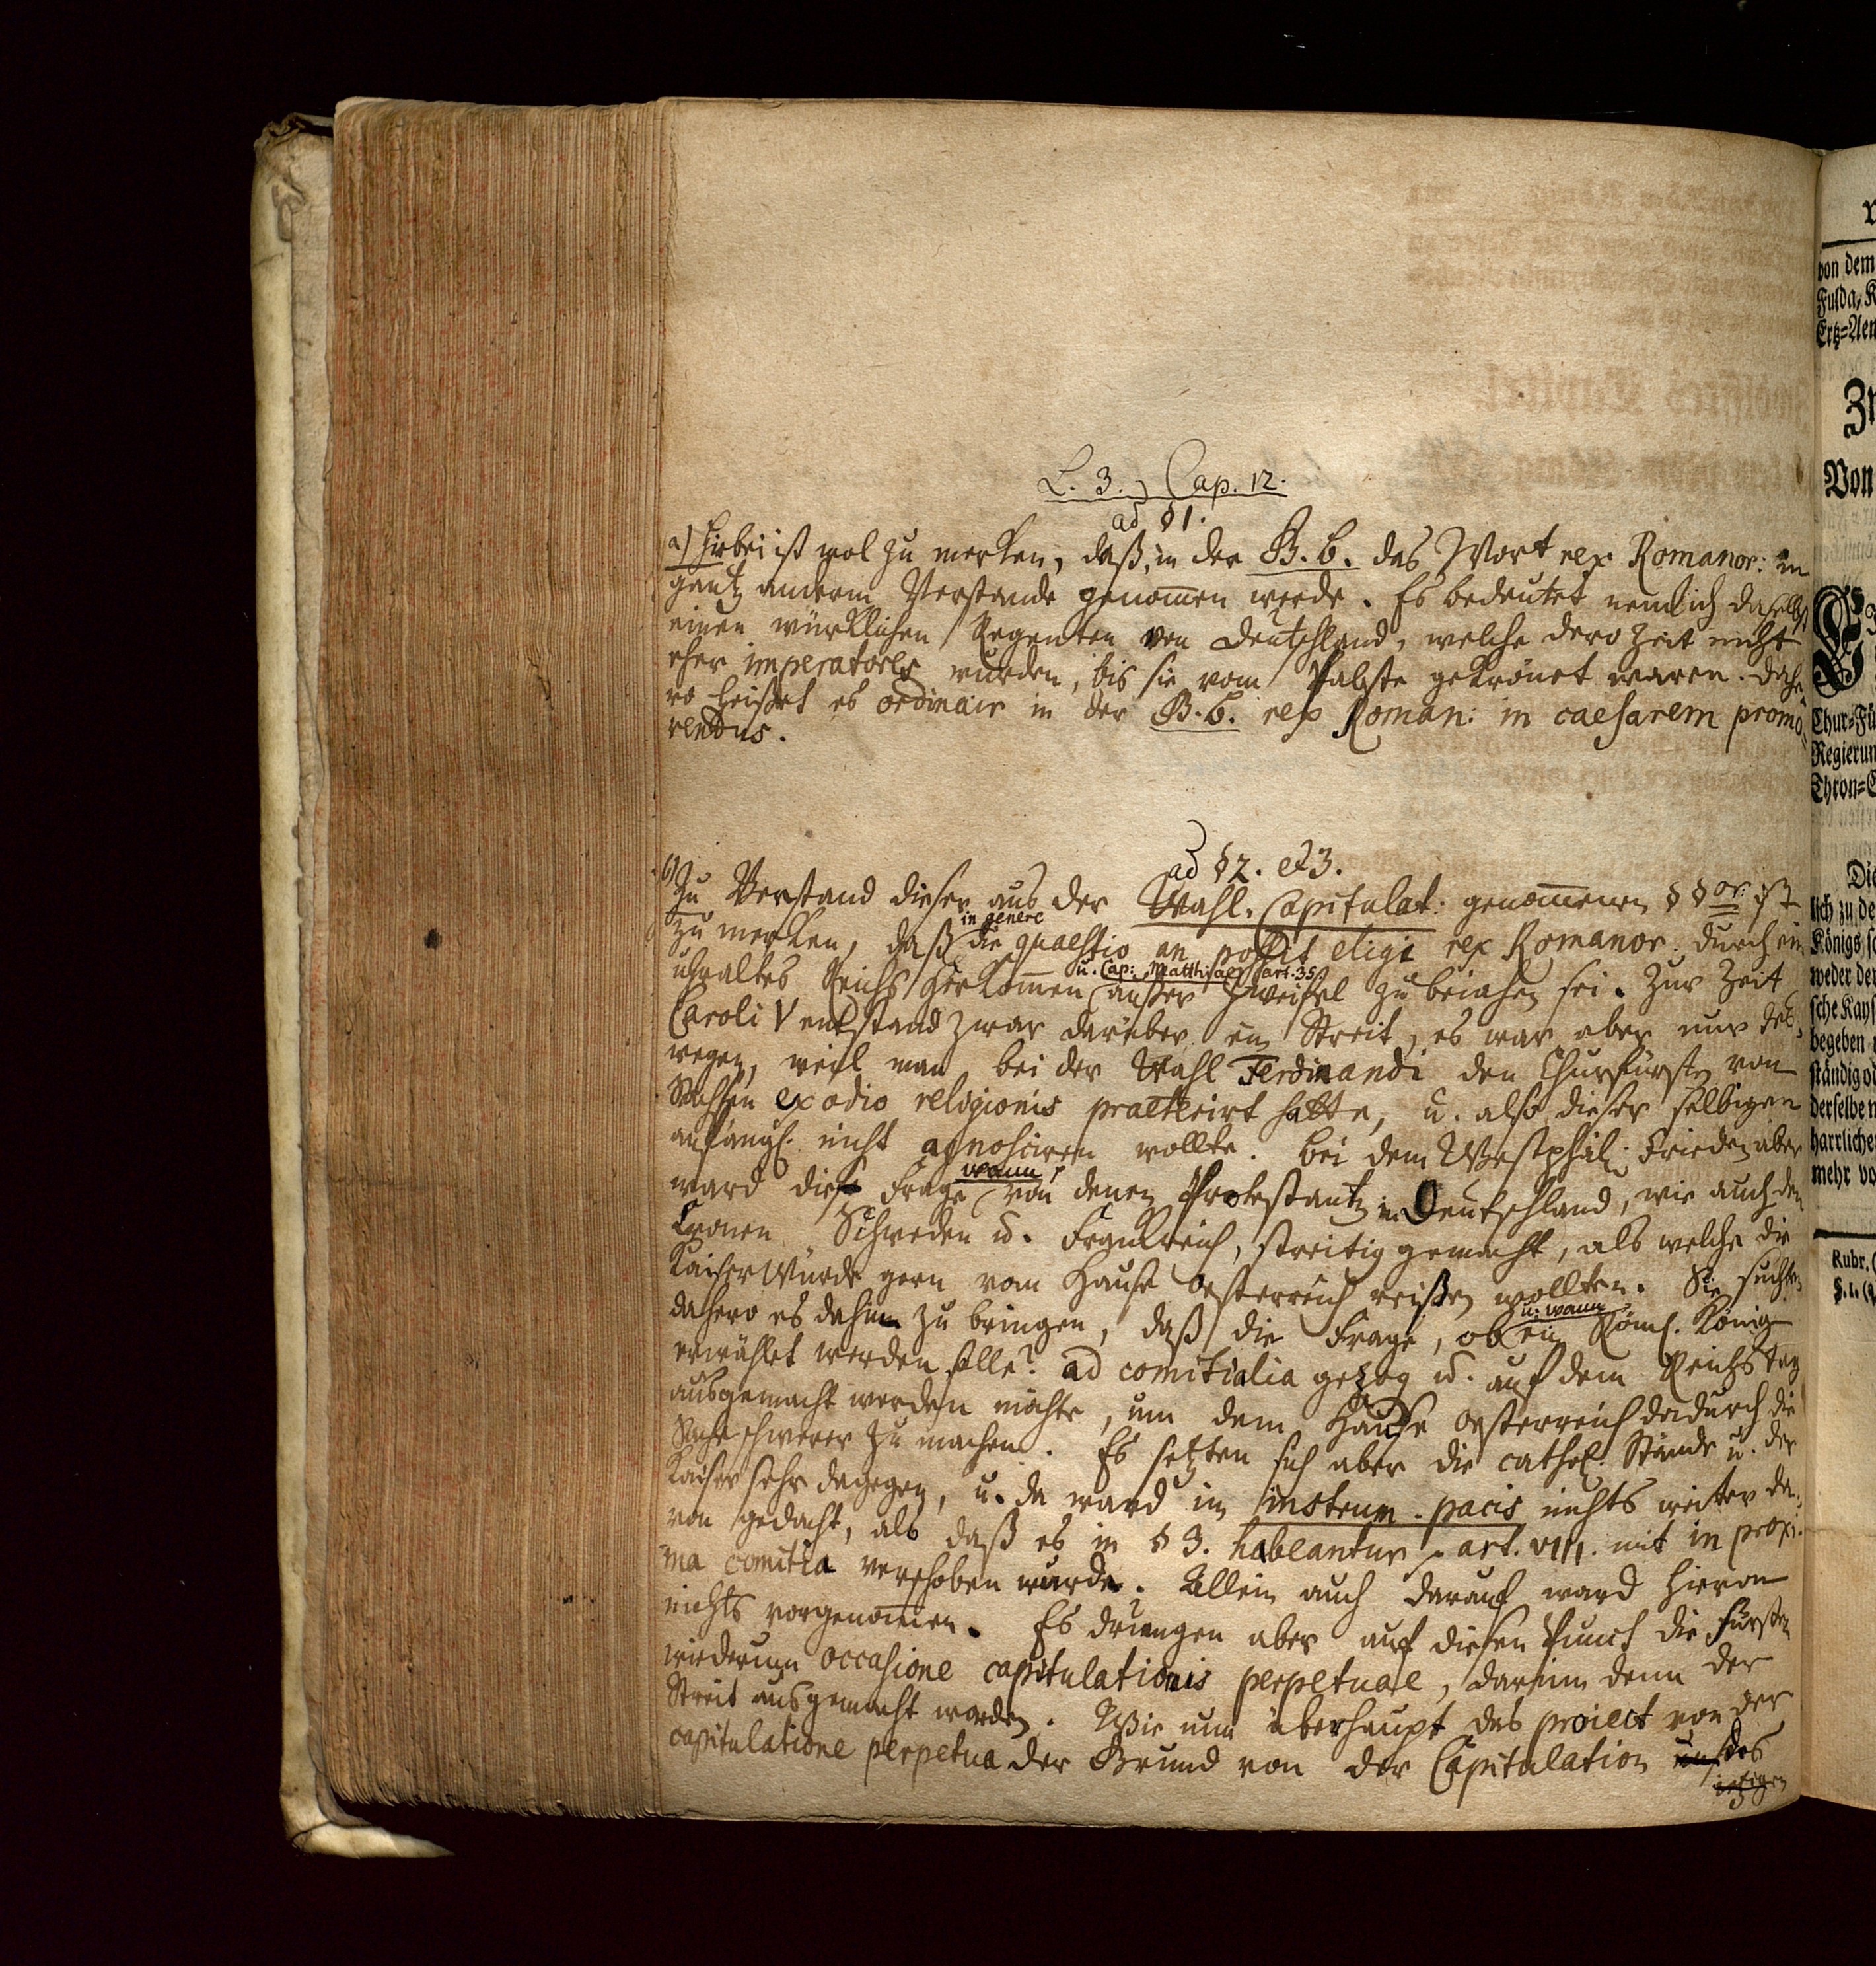 L. 3. Cap. 12.
ad § 1.
a) Hirbei ist wol zu merken, daß in der B. b. das Wort rex Romanor: in
gantz anderm Verstande genom̅en werde. Es bedeutet nemlich daselbst
einen würklichen Regenten von Deutschland, welche dero Zeit nicht
eher imperatores wurden, bis sie vom Pabste gekrönet waren. Dahe-
ro heißet es ordinair in der B. b. rex Roman: in caesarem promo=
vendus.
ad § 2. et 3.
b) Zu Verstand dieser aus der Wahl. Capitulat: genom̅enen §§or: ist
zu merken, daß in genere die quaestio an possit eligi rex Romanor. durch ein
uhraltes Reichs Herkom̅en u. Cap: Matthiae art. 35 außer Zweifel zu beiahen sei. Zur Zeit
Caroli V entstand zwar darüber ein Streit, es war aber nur des-
wegen, weil man bei der Wahl Ferdinandi den Churfürsten von
Sachsen ex odio religionis praeterirt hatte, u. also dieser selbigen
anfängl. nicht agnosciren wollte. Bei dem Westphäl: Frieden aber
ward diese Frage wann? von denen Protestantz in Deutschland, wie auch den
Cronen Schweden u. Frankreich, streitig gemacht, als welche die
Kaiser Würde gern vom Hause Oesterreich reißen wollten. Sie suchten
dahero es dahin zu bringen, daß die Frage, ob u. wann ein Röm. König
erwählet werden solle? ad comitialia gezog u. auf dem Reichstag
ausgemacht werden möchte, um dem Hause Oesterreich dadurch die
Sache schwerer zu machen. Es setzten sich aber die cathol. Stände u. der
Kaiser sehr dagegen, u. da ward im instrum. pacis nichts weiter da-
von gedacht, als daß es in § 3. habeantur art. VIII. mit in proxi-
ma comitia verschoben wurde. Allein auch darauf ward hiervon
nichts vorgenom̅en. Es drungen aber auf diesen Punct die Fürsten
wiederum occasione capitulationis perpetuae, darinn denn der
Streit ausgemacht worden. Wie nun überhaupt das proiect von der
capitulatione perpetua der Grund von der Capitulation des
ietzigen
von dem
Fulda, K
Ertz=Aem
Von
Chur=Fü
Regierun
Thron=
lich zu de
Königs so
weder der
sche Kays
begeben
ständig od
derselbe n
harrliche
mehr vo
Rubr. (
§. 1. (